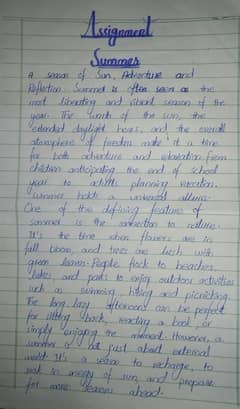 Assignment
Summer
A season of Sun, Adventure and
Reflection Summer is often seen as the
most liberating and vibrant season of the
year. The warmth of the sun, the
extended daylight hours, and the overall
atmosphere of freedom make it a time
for both adventure and relaxation from
children anticipating the end of school
year to adults planning vacation.
Summer holds a universal allure.
One of the defining feature of
summer is the connection to nature.
It's the time when flowers are in
full bloom, and trees are lush with
green leaves. People flock to beaches,
lakes, and parks to enjoy outdoor activities
such as swimming, hiking and picnicking.
The long, lazy afternoons can be perfect
for sitting back, reading a book, or
simply enjoying the moment. However, a
summer is not just about external
world. It's a season to recharge, to
soak in energy of sun, and prepare
for more seasons ahead.